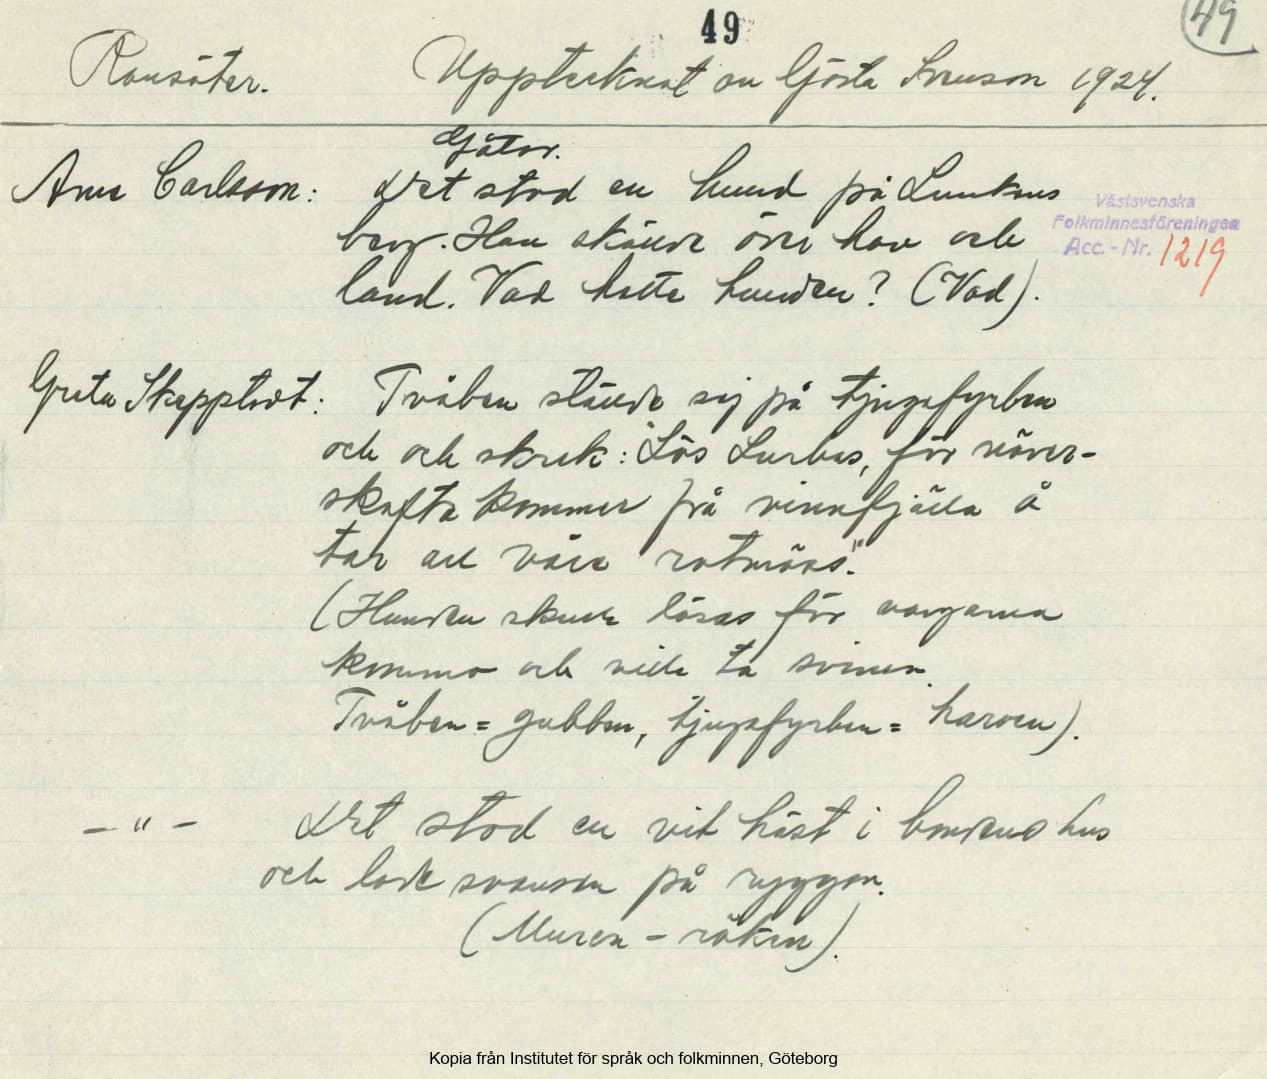 49
49
Ransäter. Upptecknat av Gösta Svenson 1924.
Gåtor.
Arne Carlsson: Det stod en hund på Lunkens
berg. Han skände över hav och
land. Vad hette hunden? (Vad).
Västsvenska
Folkminnesföreningen
Acc. - Nr. 1219
Greta Skepptedt: Tvåben stände sig på tjugafyrben
och och skrek: "Lös Lurbas, för növer-
skafta kommer frå vinnfjälla å
tar all våra rotmöss".
(Hunden skulle lösas för vargarna
kommo och ville ta svinen.
Tvåben = gubben, tjugafyrben = harven).
– " – Det stod en vit häst i bondens hus
och lade svansen på ryggen.
(Muren – röken).
Kopia från Institutet för språk och folkminnen, Göteborg